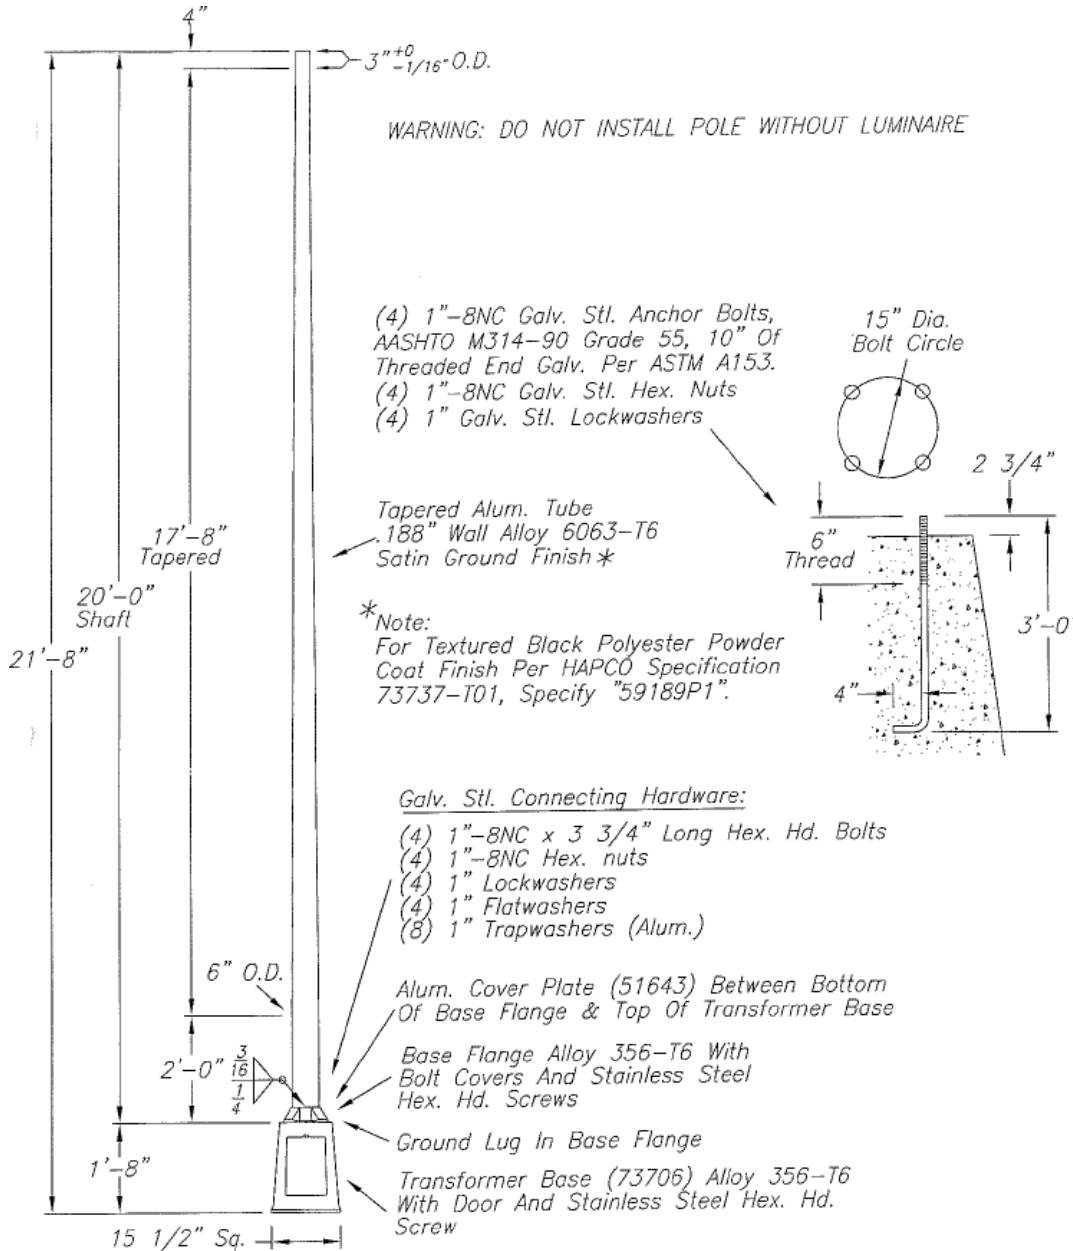 4"
3" +0 -1/16" O.D.
WARNING: DO NOT INSTALL POLE WITHOUT LUMINAIRE
(4) 1"-8NC Galv. Stl. Anchor Bolts,
AASHTO M314-90 Grade 55, 10" Of
Threaded End Galv. Per ASTM A153.
(4) 1"-8NC Galv. Stl. Hex. Nuts
(4) 1" Galv. Stl. Lockwashers
15" Dia.
Bolt Circle
2 3/4"
6"
Thread
3'-0
4"
Tapered Alum. Tube
.188" Wall Alloy 6063-T6
Satin Ground Finish *
17'-8"
Tapered
20'-0"
Shaft
21'-8"
*Note:
For Textured Black Polyester Powder
Coat Finish Per HAPCO Specification
73737-T01, Specify "59189P1".
Galv. Stl. Connecting Hardware:
(4) 1"-8NC x 3 3/4" Long Hex. Hd. Bolts
(4) 1"-8NC Hex. nuts
(4) 1" Lockwashers
(4) 1" Flatwashers
(8) 1" Trapwashers (Alum.)
6" O.D.
Alum. Cover Plate (51643) Between Bottom
Of Base Flange & Top Of Transformer Base
2'-0"
3/16
1/4
Base Flange Alloy 356-T6 With
Bolt Covers And Stainless Steel
Hex. Hd. Screws
Ground Lug In Base Flange
1'-8"
Transformer Base (73706) Alloy 356-T6
With Door And Stainless Steel Hex. Hd.
Screw
15 1/2" Sq.